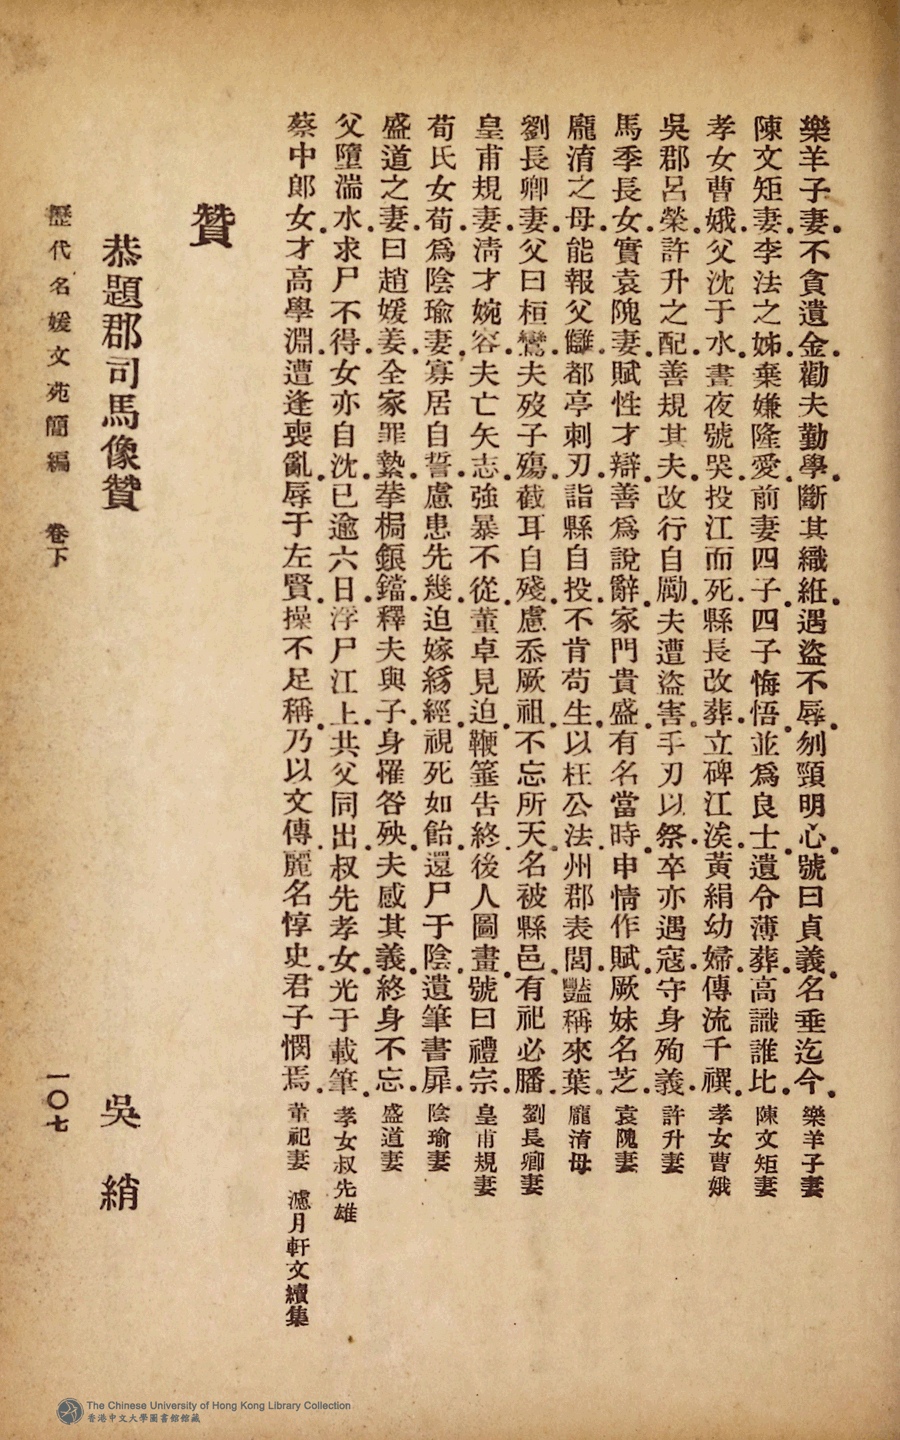 樂羊子妻不貪遺金勸夫勤學斷其織絍遇盜不辱刎頸明心號曰貞義名垂迄今 樂羊子妻
陳文矩妻李法之姊棄嫌隆愛前妻四子四子悔悟並爲良士遺令薄葬高識誰比 陳文矩妻
孝女曹娥父沈于水晝夜號哭投江而死縣長改葬立碑江涘黃絹幼婦傳流千禩 孝女曹娥
吳郡呂榮許升之配善規其夫改行自勵夫遭盜害手刃以祭卒亦遇寇守身殉義 許升妻
馬季長女實袁隗妻賦性才辯善爲說辭家門貴盛有名當時申情作賦厥妹名芝 袁隗妻
龐淯之母能報父讎都亭刺刃詣縣自投不肯苟生以枉公法州郡表閭豔稱來葉 龐淯母
劉長卿妻父曰桓鸞夫歿子殤截耳自殘慮忝厥祖不忘所天名被縣邑有祀必膰 劉長卿妻
皇甫規妻淸才婉容夫亡矢志強暴不從董卓見迫鞭箠告終後人圖畫號曰禮宗 皇甫規妻
荀氏女荀爲陰瑜妻寡居自誓慮患先幾迫嫁縊經視死如飴還尸于陰遺筆書扉 陰瑜妻
盛道之妻曰趙媛姜全家罪縶拲梏鋃鐺釋夫與子身罹咎殃夫感其義終身不忘 盛道妻
父墮湍水求尸不得女亦自沈已逾六日浮尸江上共父同出叔先孝女光于載筆 孝女叔先雄
蔡中郎女才高學淵遭逢喪亂辱于左賢操不足稱乃以文傳麗名惇史君子憫焉 董祀妻 濾月軒文續集
贊
恭題郡司馬像贊 吳綃
歷代名媛文苑簡編 卷下 一〇七
The Chinese University of Hong Kong Library Collection
香港中文大學圖書館館藏